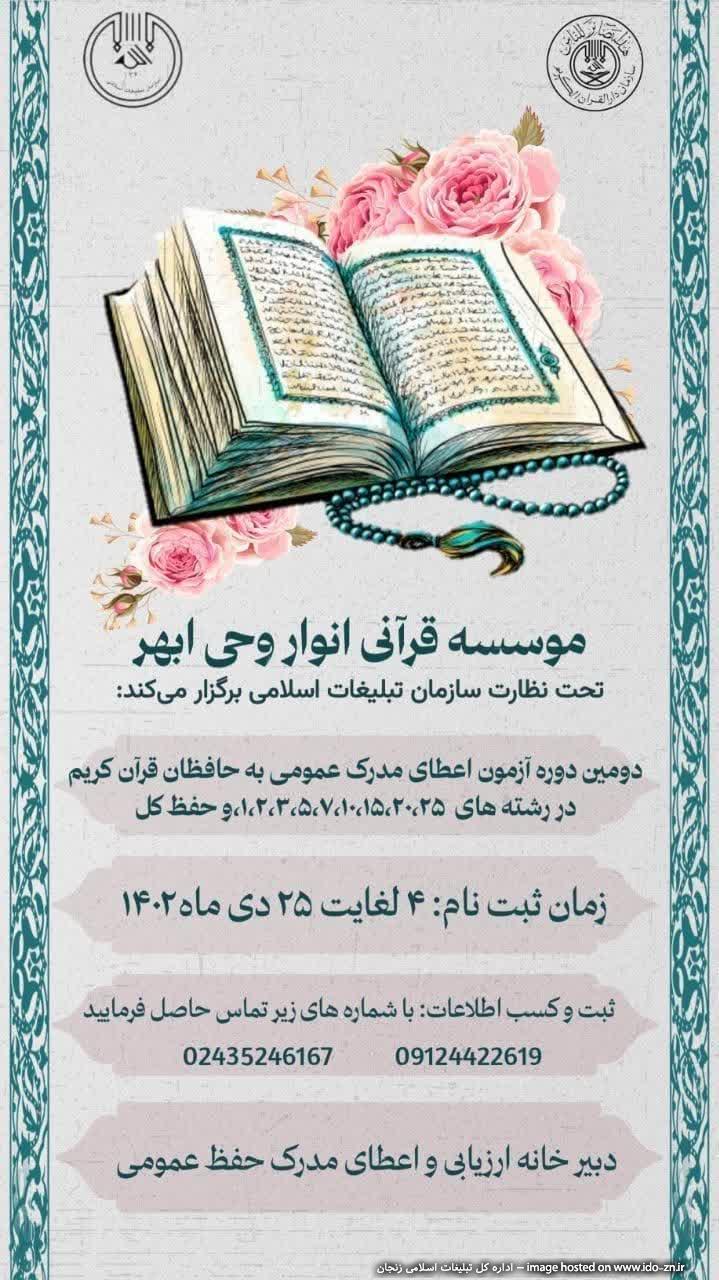 هذا بصائر للناس
سازمان دارالقرآن الکریم
سازمان تبلیغات اسلامی
موسسه قرآنی انوار وحی ابهر
تحت نظارت سازمان تبلیغات اسلامی برگزار می‌کند:
دومین دوره آزمون اعطای مدرک عمومی به حافظان قرآن کریم
در رشته های ۱،۲،۳،۵،۷،۱۰،۱۵،۲۰،۲۵،و حفظ کل
زمان ثبت نام: ۴ لغایت ۲۵ دی ماه۱۴۰۲
ثبت و کسب اطلاعات: با شماره های زیر تماس حاصل فرمایید
02435246167 09124422619
دبیر خانه ارزیابی و اعطای مدرک حفظ عمومی
image hosted on www.ido-zn.ir – اداره کل تبلیغات اسلامی زنجان